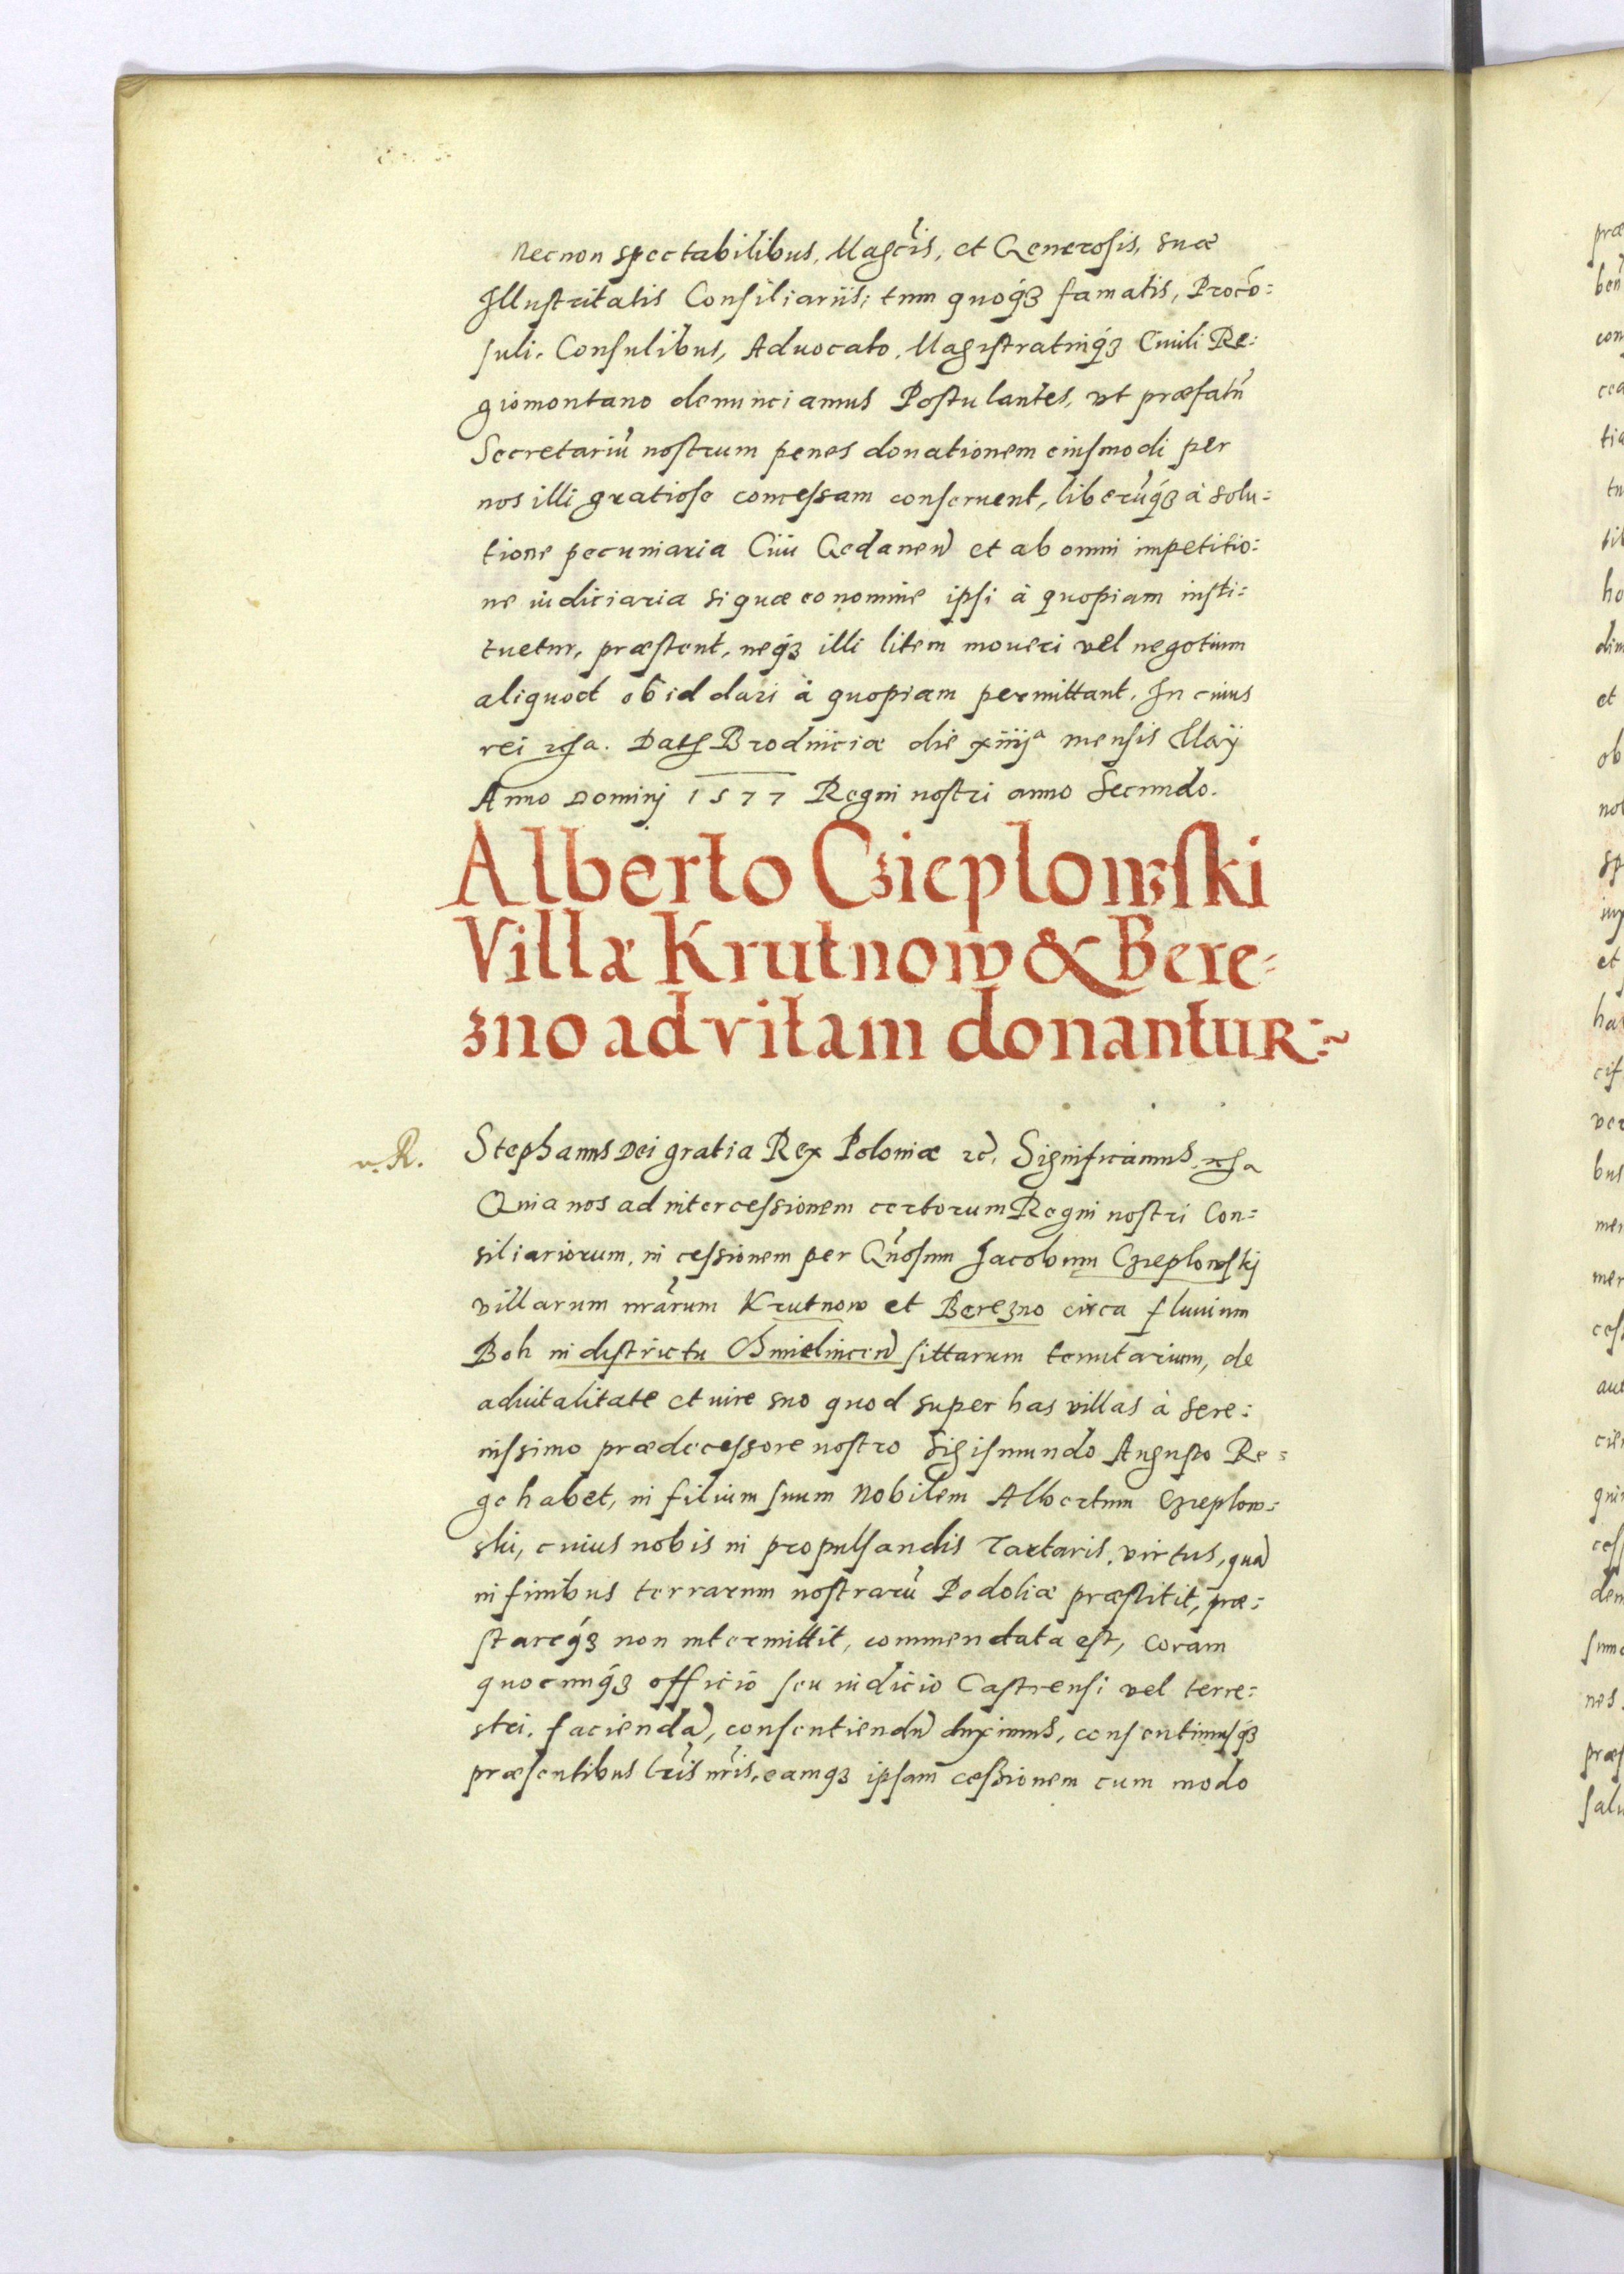 necnon spectabilibus, Magcis, et Generosis, suæ
Illustritatis Consiliariis; tum quoqꝫ famatis, Procō:
suli, Consulibus, Advocato, Magistratuiqꝫ Ciuili Re:
giomontano denunciamus Postulantes, vt præfatū
Secretariū nostrum penes donationem eiusmodi per
nos illi gratiose concessam conseruent, liberūqꝫ à solu:
tione pecuniaria Ciui Gedanen et ab omni impetitio:
ne iudiciaria si quæ eo nomine ipsi à quopiam insti:
tuetur, præstent, neqꝫ illi litem moueri vel negotium
aliquod ob id dari à quopiam permittant. In cuius
rei rsa. Dats Brodniciæ die xiiijᵃ mensis Maij
Anno Dominj 1577 Regni nostri anno Secundo.
Alberto Czieplowski
Villæ Krutnow & Bere-
zno ad vitam donantur:~
v. R.
Stephanus Dei gratia Rex Poloniæ ꝛc. Significamus. rsa
Quia nos ad intercessionem certorum Regni nostri Con:
siliariorum, in cessionem per Gnosum Jacobum Czieplowskj
villarum nrārum Krutnow et Berezno circa fluuium
Boh in districtu Chmielnicen sittarum tenutarium, de
aduitalitate et iure suo quod super has villas à Sere:
nissimo prædecessore nostro Sigismundo Augusto Re:
ge habet, in filium suum Nobilem Albertum Czieplow:
ski, cuius nobis in propulsandis Tartaris, virtus, quā
in finibus terrarum nostrarū Podoliæ præstitit, præ:
stareqꝫ non intermittit, commendata est, coram
quocunqꝫ officio seu iudicio Castrensi vel terre:
stri, faciendā, consentiendū duximus, consentimusqꝫ
præsentibus lrīs nrīs, eamqꝫ ipsam cessionem cum modo